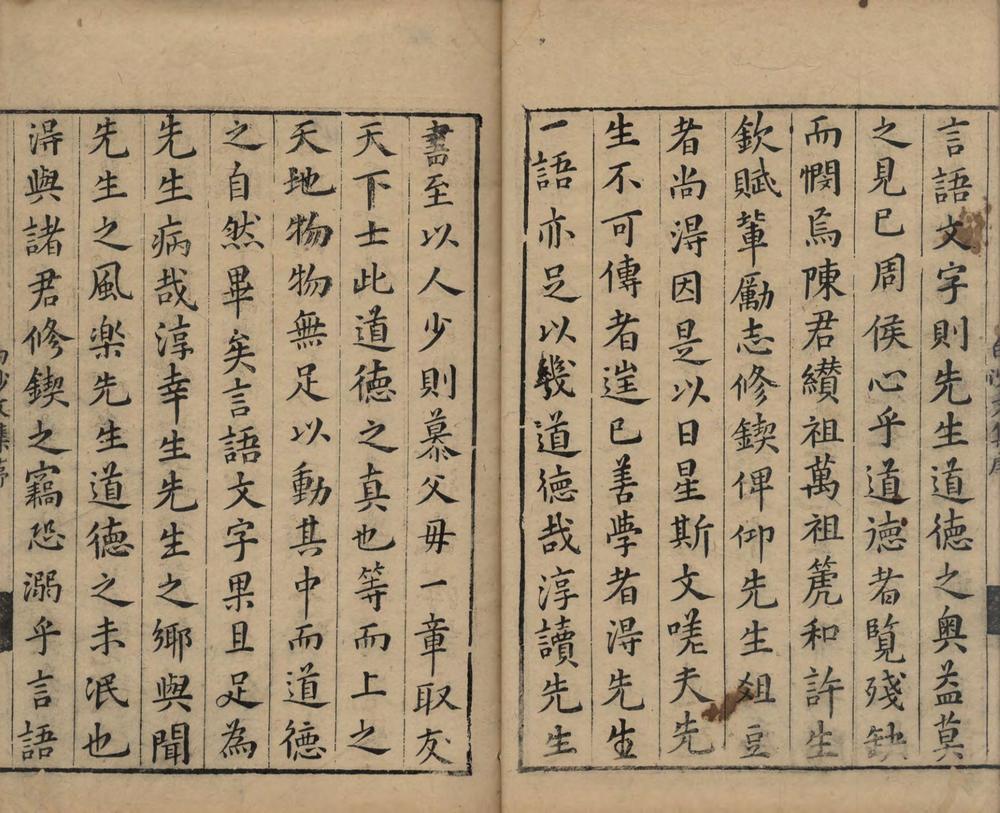 言語文字則先生道德之奧益莫
之見已周侯心乎道德者覽殘缺
而憫焉陳君纘祖萬祖箎和許生
欽賦輩勵志修鍥俾仰先生俎豆
者尚淂因是以日星斯文嗟夫先
生不可傳者逞已善學者淂先生
一語亦足以幾道德哉淳讀先生
書至以人少則慕父毋一章取友
天下士此道德之真也等而上之
天地物物無足以動其中而道德
之自然畢矣言語文字果且足為
先生病哉淳幸生先生之鄉與聞
先生之風樂先生道德之未泯也
淂與諸君修鍥之竊恐溺乎言語
白沙文集序